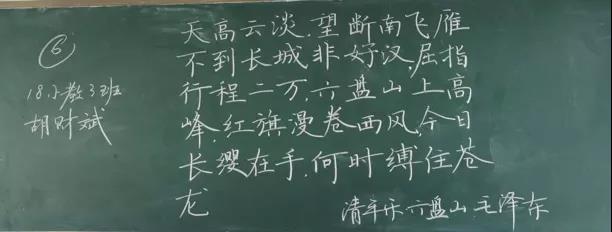 6
18.小教3班
胡财斌
天高云淡,望断南飞雁
不到长城非好汉,屈指
行程二万,六盘山上高
峰,红旗漫卷西风,今日
长缨在手,何时缚住苍
龙
清平乐·六盘山 毛泽东